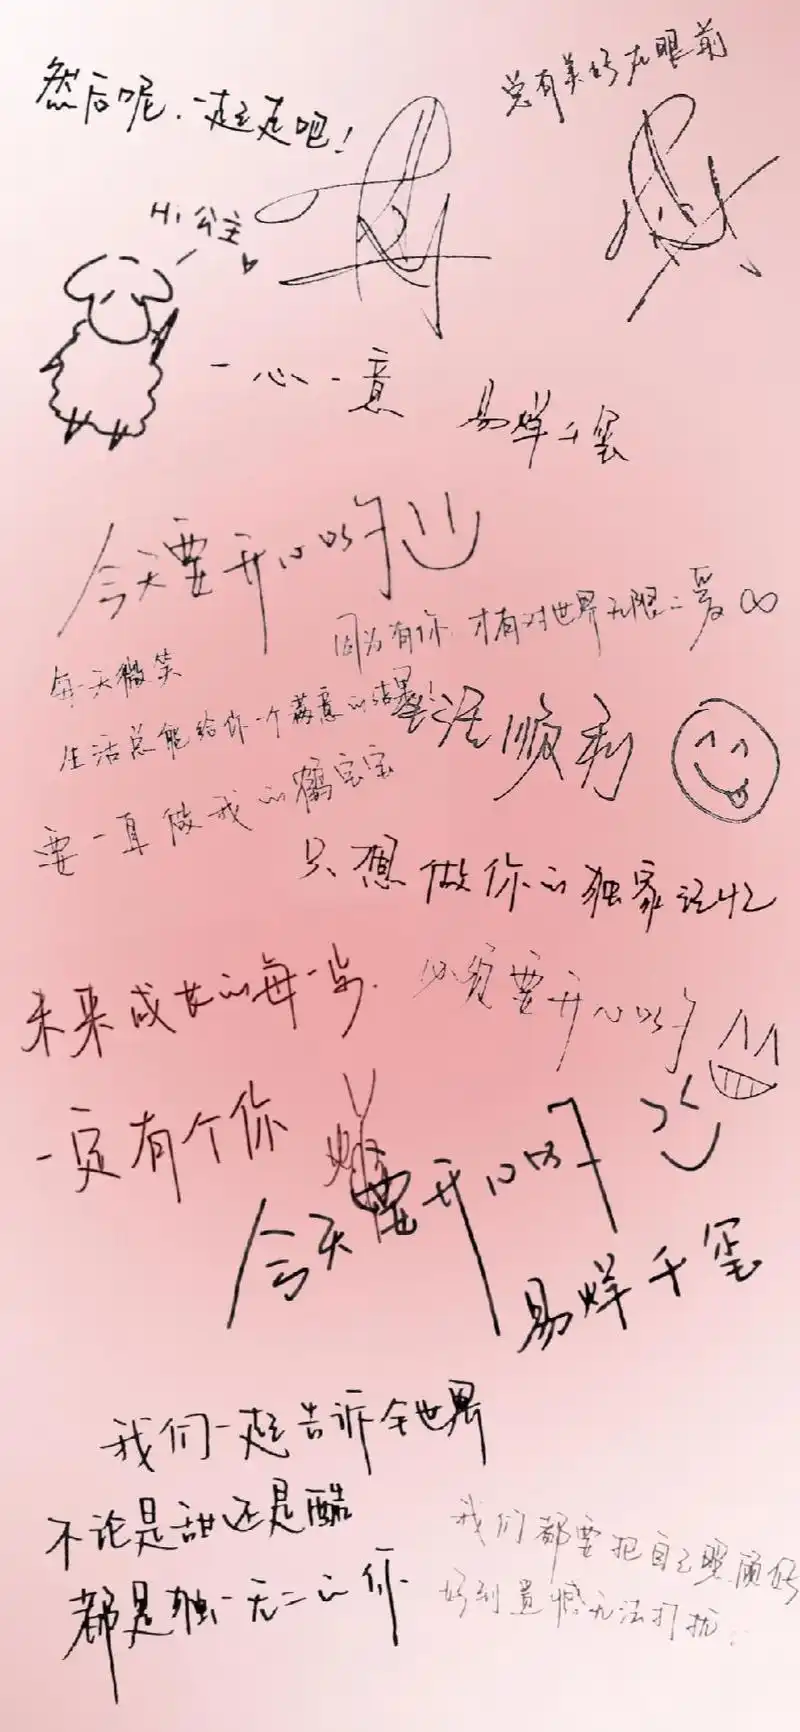 然后呢,一起走吧!
总有美好在眼前
Hi 公主
一心一意
易烊千玺
今天要开心呀
因为有你,才有对世界无限二爱∞
每天微笑
生活总能给你一个满意的结果!
生活顺利
要一直做我的鹤宝宝
只想做你的独家记忆
未来成长的每一步.
必须要开心呀
一定有个你
今天要开心呀
易烊千玺
我们一起告诉全世界
不论是甜还是酷
都是独一无二的你
我们都要把自己照顾好
好到遗憾无法打扰